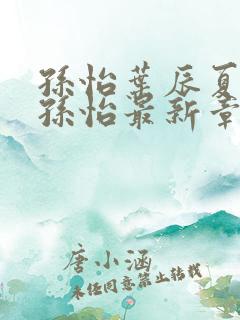 孫怡葉辰夏
孫怡最新章
唐小涵
未经同意禁止转载